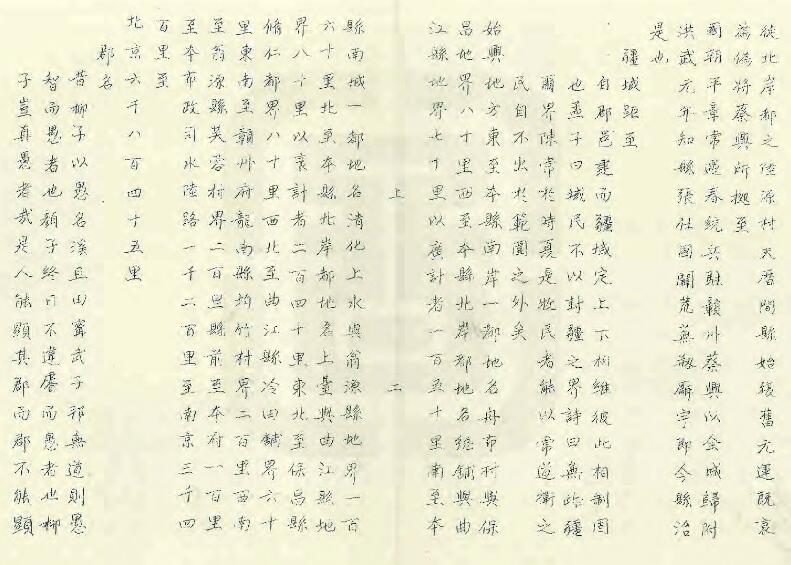 徙北岸都之陸源村天曆間縣始復舊元運既衰
為偽將蔡興所據至
國朝平章常遇春統兵駐贛州蔡興以全城歸附
洪武元年知縣張仕國闢荒蕪剏廳宇即今縣治
是也
疆域距至
自郡邑建而疆域定上下相維彼此相制固
也孟子曰域民不以封疆之界詩曰無此疆
爾界陳常於時夏是牧民者能以常道衛之
民自不出於範圍之外矣
始興地方東至本縣南岸一都地名舟市村與保
昌地界八十里西至本縣北岸都地名總舖與曲
江縣地界七十里以廣計者一百五十里南至本
上 二
縣南城一都地名清化上水與翁源縣地界一百
六十里北至本縣北岸都地名上臺與曲江縣地
界八十里以袤計者二百四十里東北至保昌縣
脩仁都界八十里西北至曲江縣冷田舖界六十
里東南至贛州府龍南縣均竹村界二百里西南
至翁源縣芙蓉村界二百里縣前至本府一百里
至本布政司水陸路一千二百里至南京三千四
百里至
北京六千八百四十五里
郡名
昔柳子以愚名溪且曰甯武子邦無道則愚
智而愚者也顏子終日不違愚而愚者也柳
子豈真愚者哉是人能顯其郡而郡不能顯